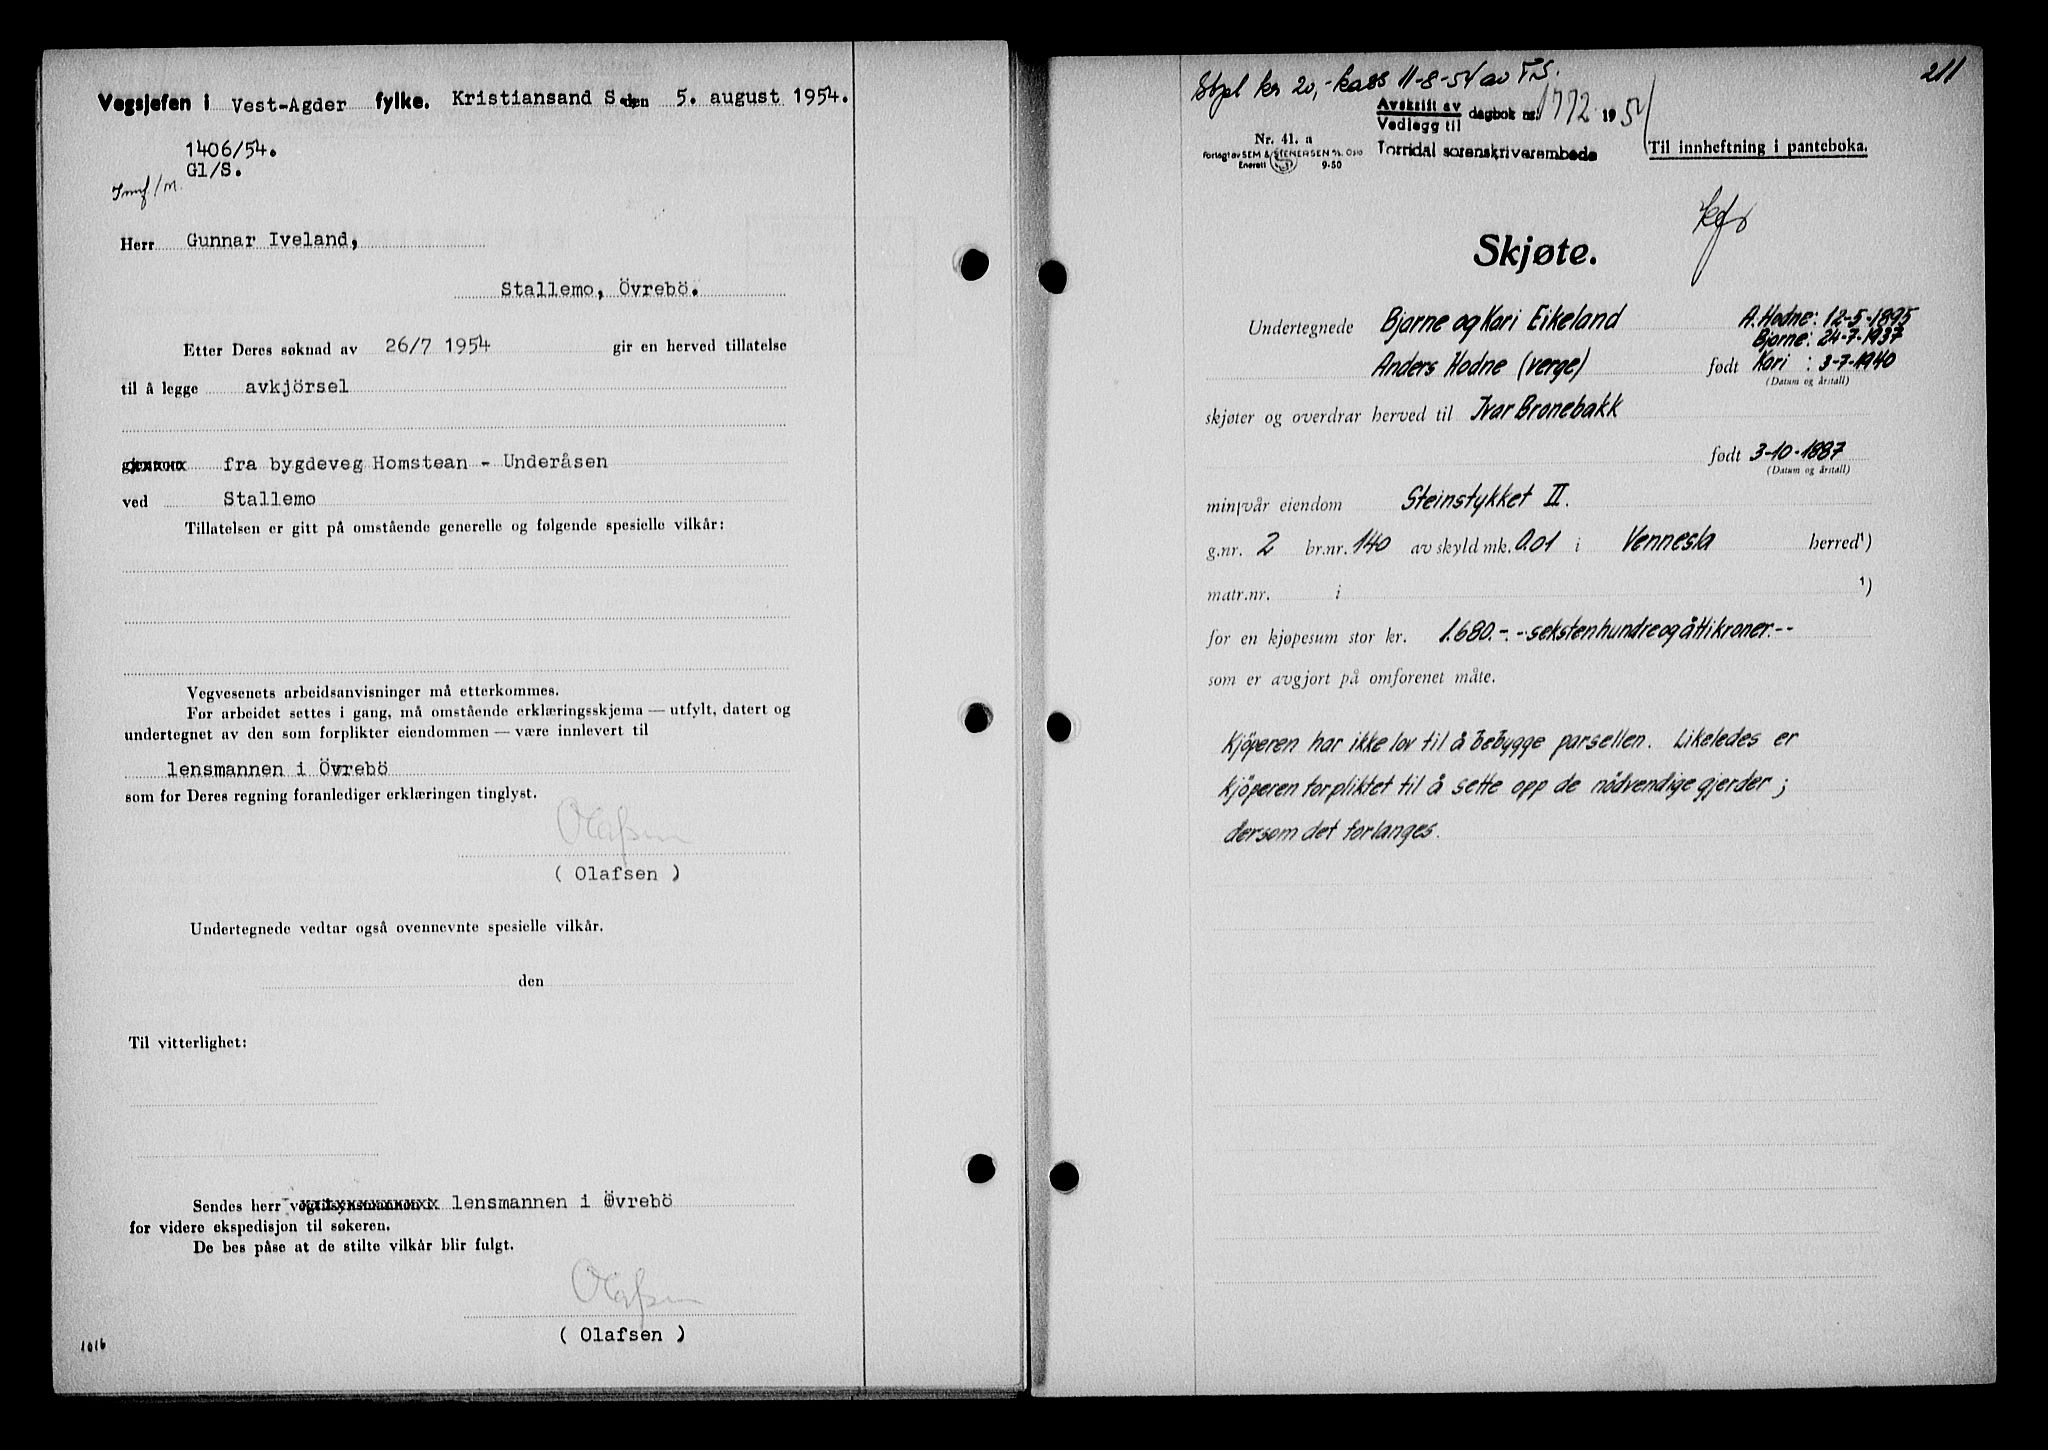 Vegsjefen i Vest-Agder fylke. Kristiansand S. den 5. august 1954.
1406/54.
Gl/S.
Herr Gunnar Iveland,
Stallemo, Övrebö.
Etter Deres søknad av 26/7 1954 gir en herved tillatelse
til å legge avkjörsel
fra bygdeveg Homstean - Underåsen
ved Stallemo
Tillatelsen er gitt på omstående generelle og følgende spesielle vilkår:
Vegvesenets arbeidsanvisninger må etterkommes.
Før arbeidet settes i gang, må omstående erklæringsskjema — utfylt, datert og
undertegnet av den som forplikter eiendommen — være innlevert til
lensmannen i Övrebö
som for Deres regning foranlediger erklæringen tinglyst.
Olafsen
( Olafsen )
Undertegnede vedtar også ovennevnte spesielle vilkår.
den
Til vitterlighet:
Sendes herr lensmannen i Övrebö
for videre ekspedisjon til søkeren.
De bes påse at de stilte vilkår blir fulgt.
Olafsen
( Olafsen )
1016
211
Stpl kr 20,- kass 11-8-54 av TS.
Avskrift av
Vedlegg til dagbok nr. 1772 1954
Torridal sorenskriverembede
Nr. 41. a
Forlagt av SEM & STENERSEN A/S. Oslo
Enerett 9-50
Til innheftning i panteboka.
Skjøte.
Undertegnede Bjarne og Kari Eikeland A. Hodne: 12-5-1895
Bjarne: 24-7-1937
Anders Hodne (verge) født Kari : 3-7-1940
(Datum og årstall)
skjøter og overdrar herved til Ivar Bronebakk
født 3-10-1887
(Datum og årstall)
min|vår eiendom Steinstykket II.
g.nr. 2 br.nr. 140 av skyld mk. 0.01 i Vennesla herred¹)
matr.nr. i ¹)
for en kjøpesum stor kr. 1.680.-.- sekstenhundreogåttikroner.--
som er avgjort på omforenet måte.
Kjöperen har ikke lov til å bebygge parsellen. Likeledes er
kjöperen forpliktet til å sette opp de nödvendige gjerder;
dersom det forlanges.